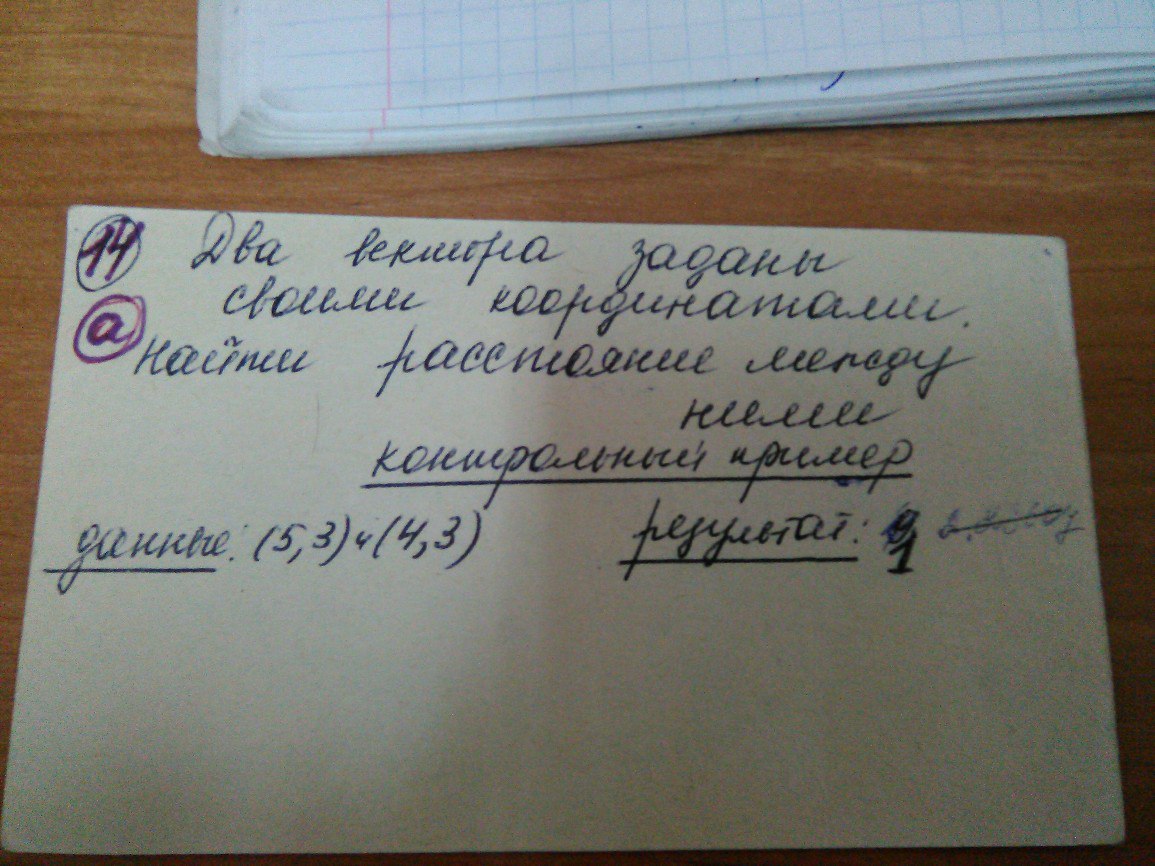 14 Два вектора заданы
своими координатами.
а Найти расстояние между
ними
контрольный пример
данные: (5,3) и (4,3) результат: 1